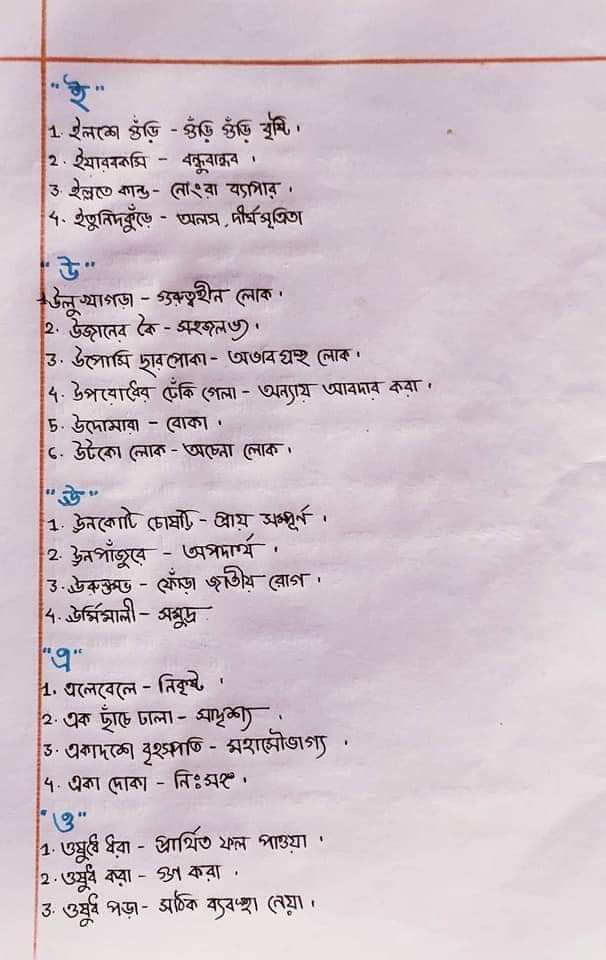 "ই"
1. ইলশে গুঁড়ি - গুঁড়ি গুঁড়ি বৃষ্টি।
২. ইয়ারবকসি - বন্ধুবান্ধব।
৩. ইল্লতে কান্ড - নোংরা ব্যাপার।
৪. ইতুনিদকুঁড়ে - অলস, দীর্ঘসূত্রিতা
"উ"
1. উলু খাগড়া - গুরুত্বহীন লোক।
২. উজানের কৈ - সহজলভ্য।
৩. উপোসি ছারপোকা - অভাবগ্রস্থ লোক।
৪. উপরোধের ঢেঁকি গেলা - অন্যায় আবদার করা।
৫. উদোমারা - বোকা।
৬. উটকো লোক - অচেনা লোক।
"ঊ"
1. ঊনকোটি চৌষট্টি - প্রায় সম্পূর্ন।
২. ঊনপাঁজুরে - অপদার্থ।
৩. ঊরুস্তম্ভ - ফোঁড়া জাতীয় রোগ।
৪. ঊর্মিমালী - সমুদ্র
"এ"
1. এলেবেলে - নিকৃষ্ট।
২. এক ছাঁচে ঢালা - সাদৃশ্য।
৩. একাদশে বৃহস্পতি - মহাসৌভাগ্য।
৪. একা দোকা - নিঃসঙ্গ।
"ও"
1. ওষুধে ধরা - প্রার্থিত ফল পাওয়া।
২. ওষুধ করা - গুণ করা।
৩. ওষুধ পড়া - সঠিক ব্যবস্থা নেয়া।